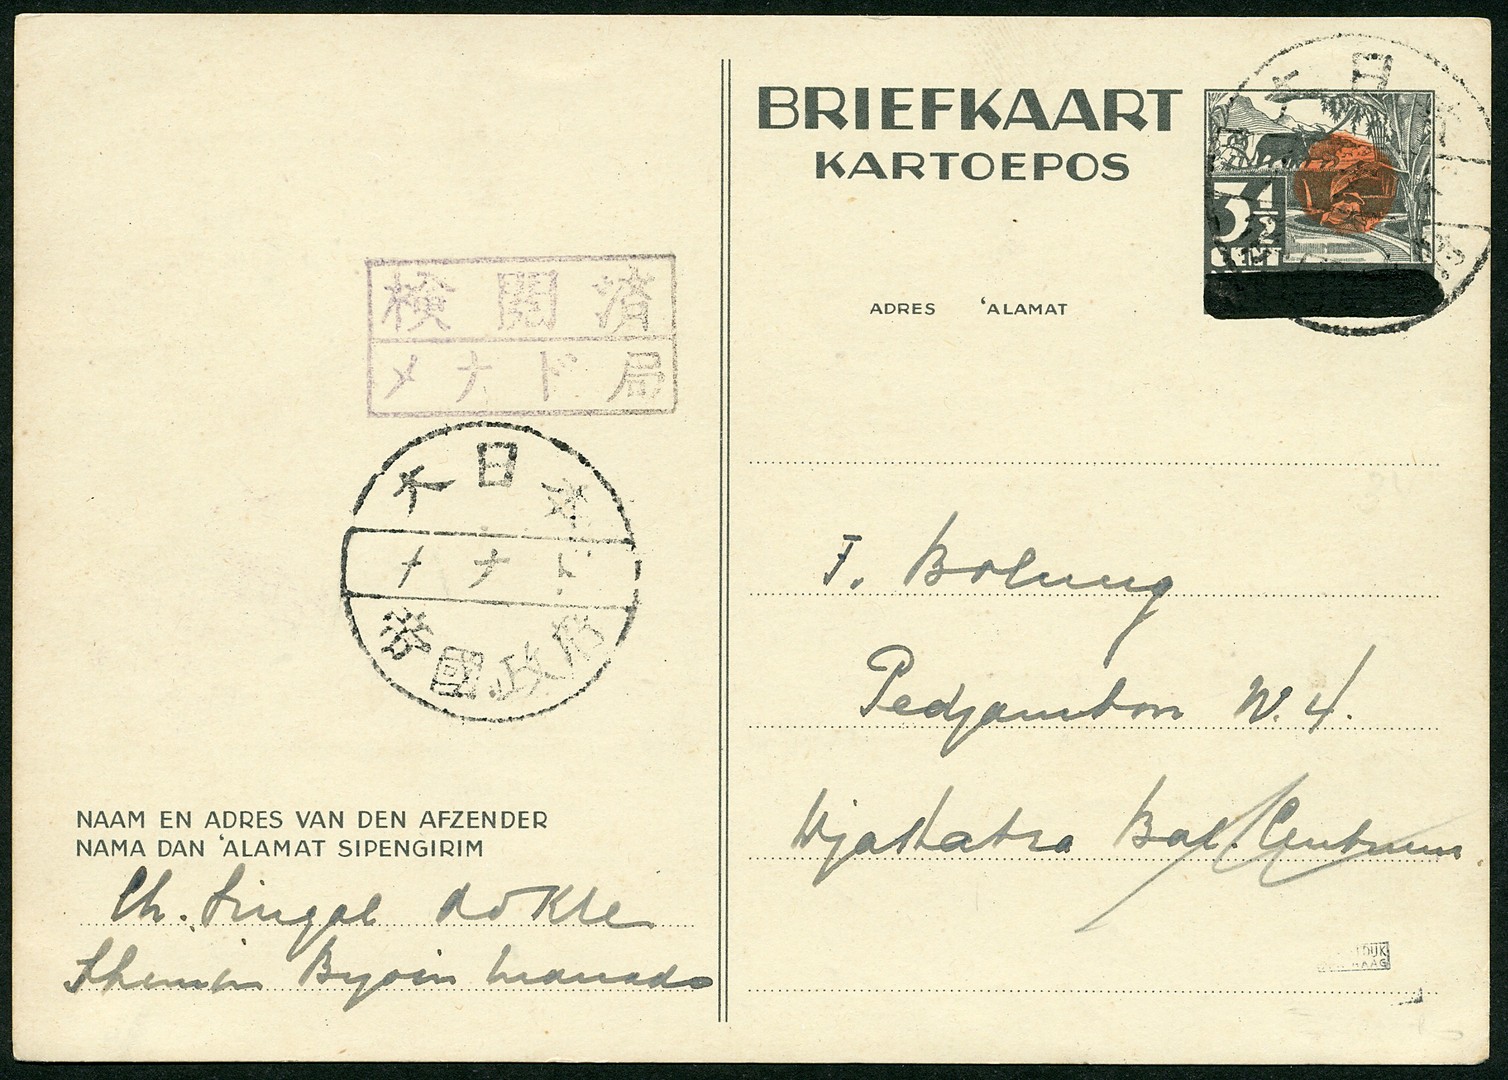 BRIEFKAART
KARTOEPOS
3½
CENT
ADRES 'ALAMAT
検閲済
メナド局
大日本
メナド
帝國政府
F. Bolung
Pedjambon W. 4.
Djakatra Bal. Centrum
NAAM EN ADRES VAN DEN AFZENDER
NAMA DAN 'ALAMAT SIPENGIRIM
Ch. Singal
Byoin Manado